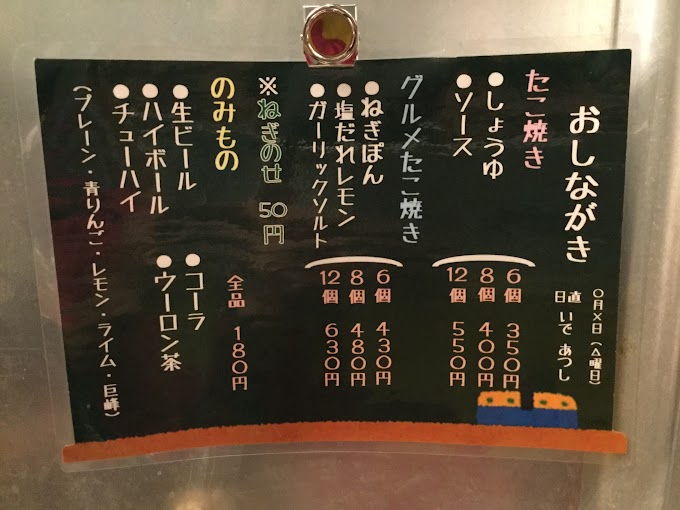 おしながき
〇月×日(△曜日)
日直 いで あつし
たこ焼き
●しょうゆ
●ソース
6個 350円
8個 400円
12個 550円
グルメたこ焼き
●ねぎぽん
●塩だれレモン
●ガーリックソルト
6個 430円
8個 480円
12個 630円
※ねぎのせ 50円
のみもの
全品 180円
●生ビール
●ハイボール
●チューハイ
(プレーン・青りんご・レモン・ライム・巨峰)
●コーラ
●ウーロン茶